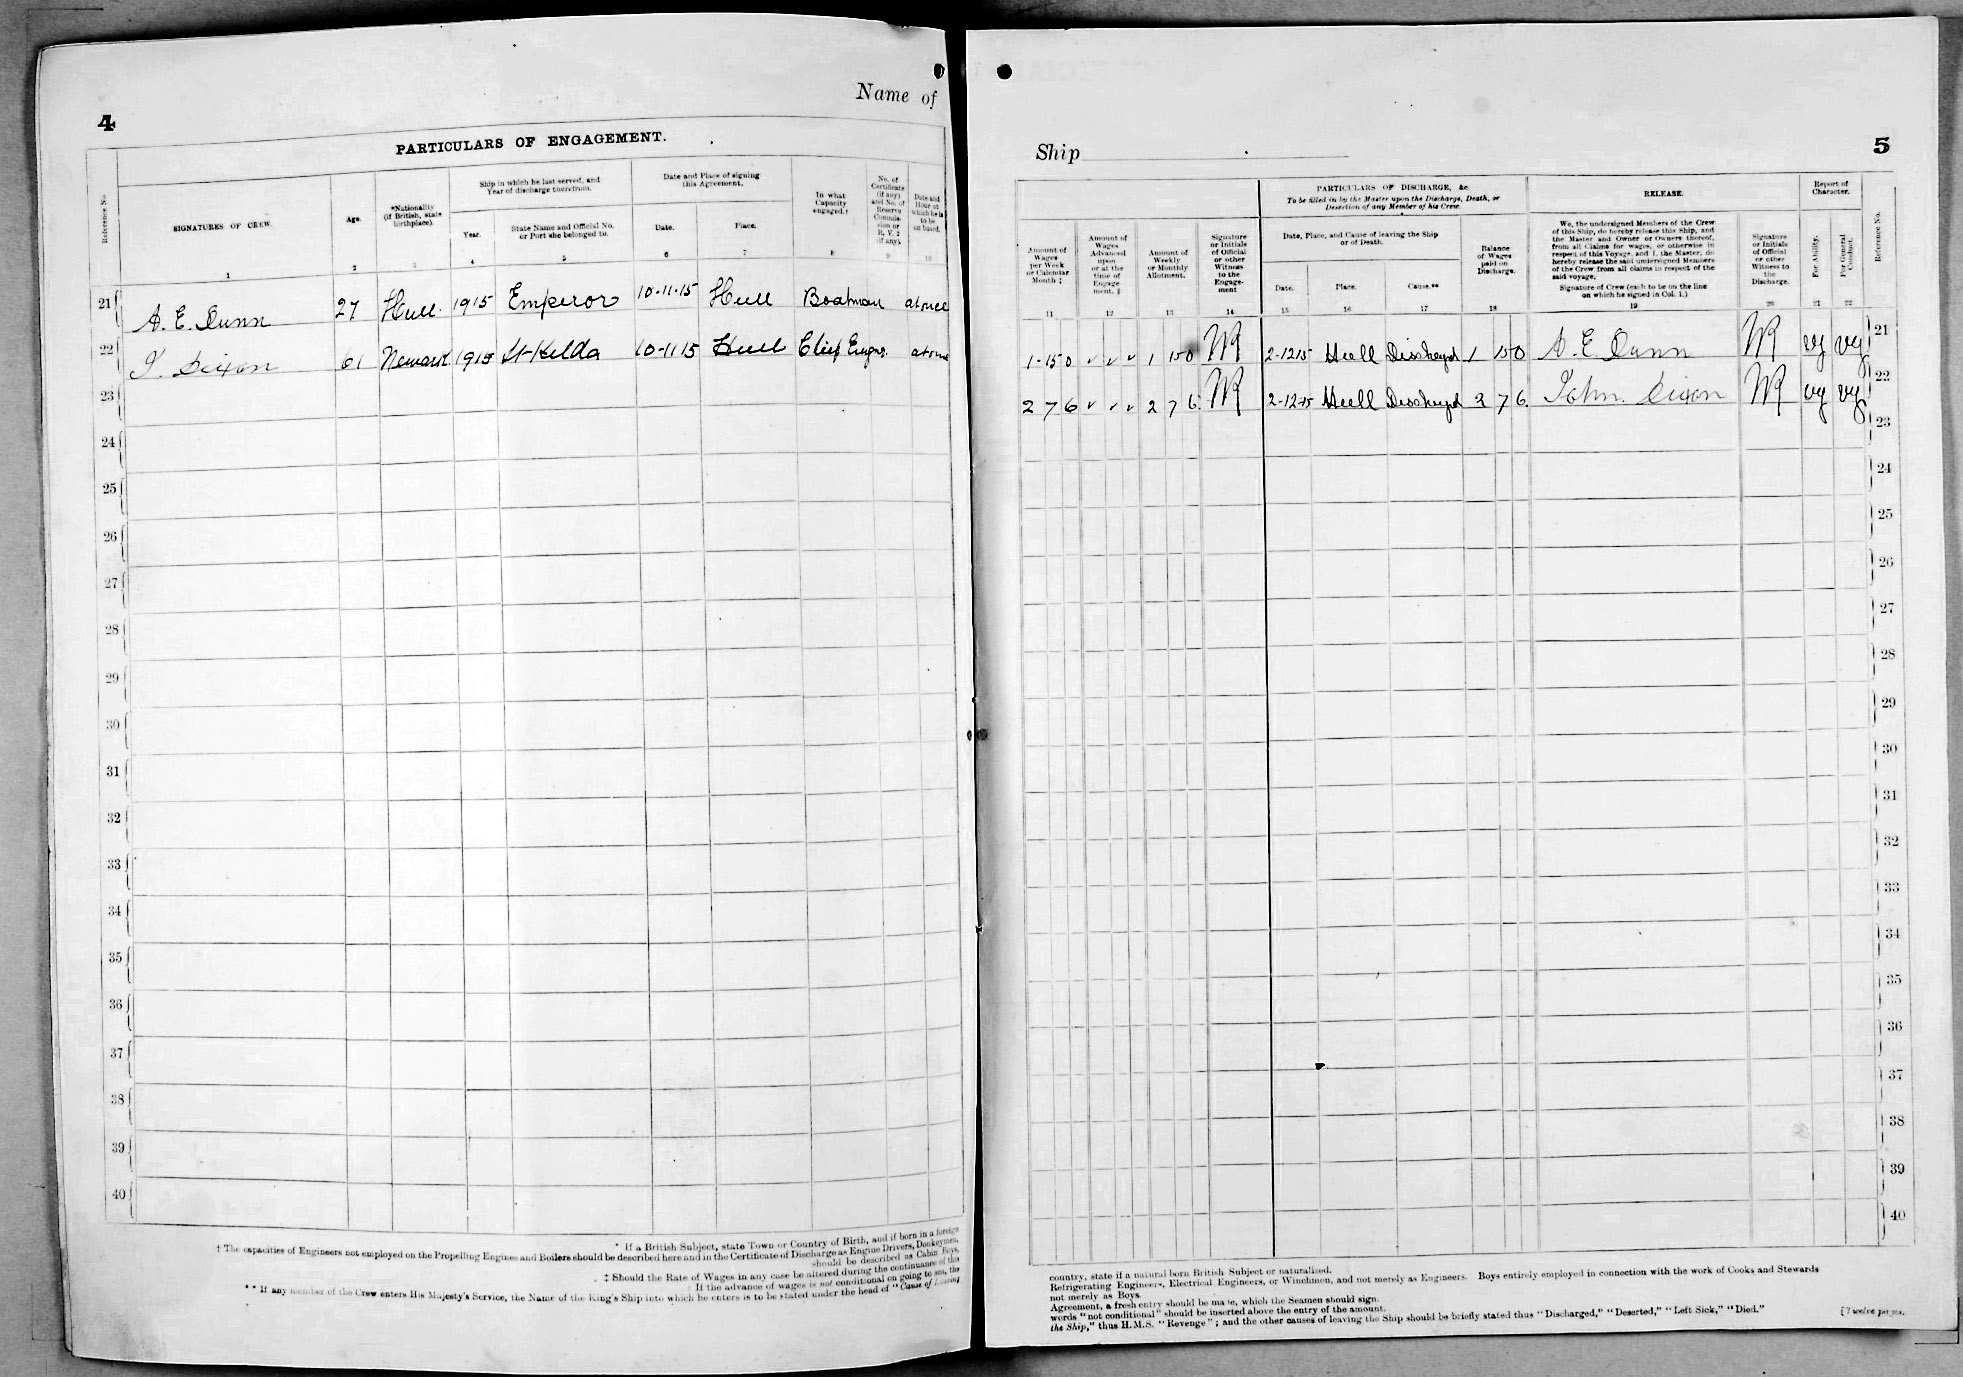 4
Name of
PARTICULARS OF ENGAGEMENT.
Reference No.
SIGNATURES OF CREW.
Age.
*Nationality (if British, state birthplace).
Ship in which he last served, and Year of discharge therefrom.
Year.
State Name and Official No. or Port she belonged to.
Date and Place of signing this Agreement.
Date.
Place.
In what Capacity engaged.†
No. of Certificate (if any) and No. of Reserve Commission or R. V. 2 (if any).
Date and Hour at which he is to be on board.
1 2 3 4 5 6 7 8 9 10
21 A. E. Dunn 27 Hull. 1915 Emperor 10-11-15 Hull Boatman at once
22 J. Dixon 61 Newark 1915 St Kelda 10-11 15 Hull Chief Engnr. at once
23
24
25
26
27
28
29
30
31
32
33
34
35
36
37
38
39
40
* If a British Subject, state Town or Country of Birth, and if born in a foreign
† The capacities of Engineers not employed on the Propelling Engines and Boilers should be described here and in the Certificate of Discharge as Engine Drivers, Donkeymen,
should be described as Cabin Boys,
‡ Should the Rate of Wages in any case be altered during the continuance of this
If the advance of wages is not conditional on going to sea, the
** If any member of the Crew enters His Majesty's Service, the Name of the King's Ship into which he enters is to be stated under the head of "Cause of Leaving
Ship
5
PARTICULARS OF DISCHARGE, &c.
To be filled in by the Master upon the Discharge, Death, or Desertion of any Member of his Crew.
RELEASE.
Report of Character.
Amount of Wages per Week or Calendar Month ‡
Amount of Wages Advanced upon or at the time of Engagement. ‖
Amount of Weekly or Monthly Allotment.
Signature or Initials of Official or other Witness to the Engagement
Date, Place, and Cause of leaving the Ship or of Death.
Date.
Place.
Cause.**
Balance of Wages paid on Discharge.
We, the undersigned Members of the Crew
of this Ship, do hereby release this Ship, and
the Master and Owner or Owners thereof,
from all Claims for wages, or otherwise in
respect of this Voyage, and I, the Master, do
hereby release the said undersigned Members
of the Crew from all claims in respect of the
said voyage.
Signature of Crew (each to be on the line on which he signed in Col. 1.)
Signature or Initials of Official or other Witness to the Discharge.
For Ability.
For General Conduct.
Reference No.
11 12 13 14 15 16 17 18 19 20 21 22
1-15 0 1 15 0 WR 2-12 15 Hull Discharged 1 15 0 A. E. Dunn WR vg vg 21
2 7 6 2 7 6 WR 2-12-15 Hull Discharged 2 7 6 John Dixon WR vg vg 22
23
24
25
26
27
28
29
30
31
32
33
34
35
36
37
38
39
40
country, state if a natural born British Subject or naturalised.
Refrigerating Engineers, Electrical Engineers, or Winchmen, and not merely as Engineers. Boys entirely employed in connection with the work of Cooks and Stewards
not merely as Boys.
Agreement, a fresh entry should be made, which the Seamen should sign.
words "not conditional" should be inserted above the entry of the amount.
the Ship," thus H.M.S. "Revenge"; and the other causes of leaving the Ship should be briefly stated thus "Discharged," "Deserted," "Left Sick," "Died."